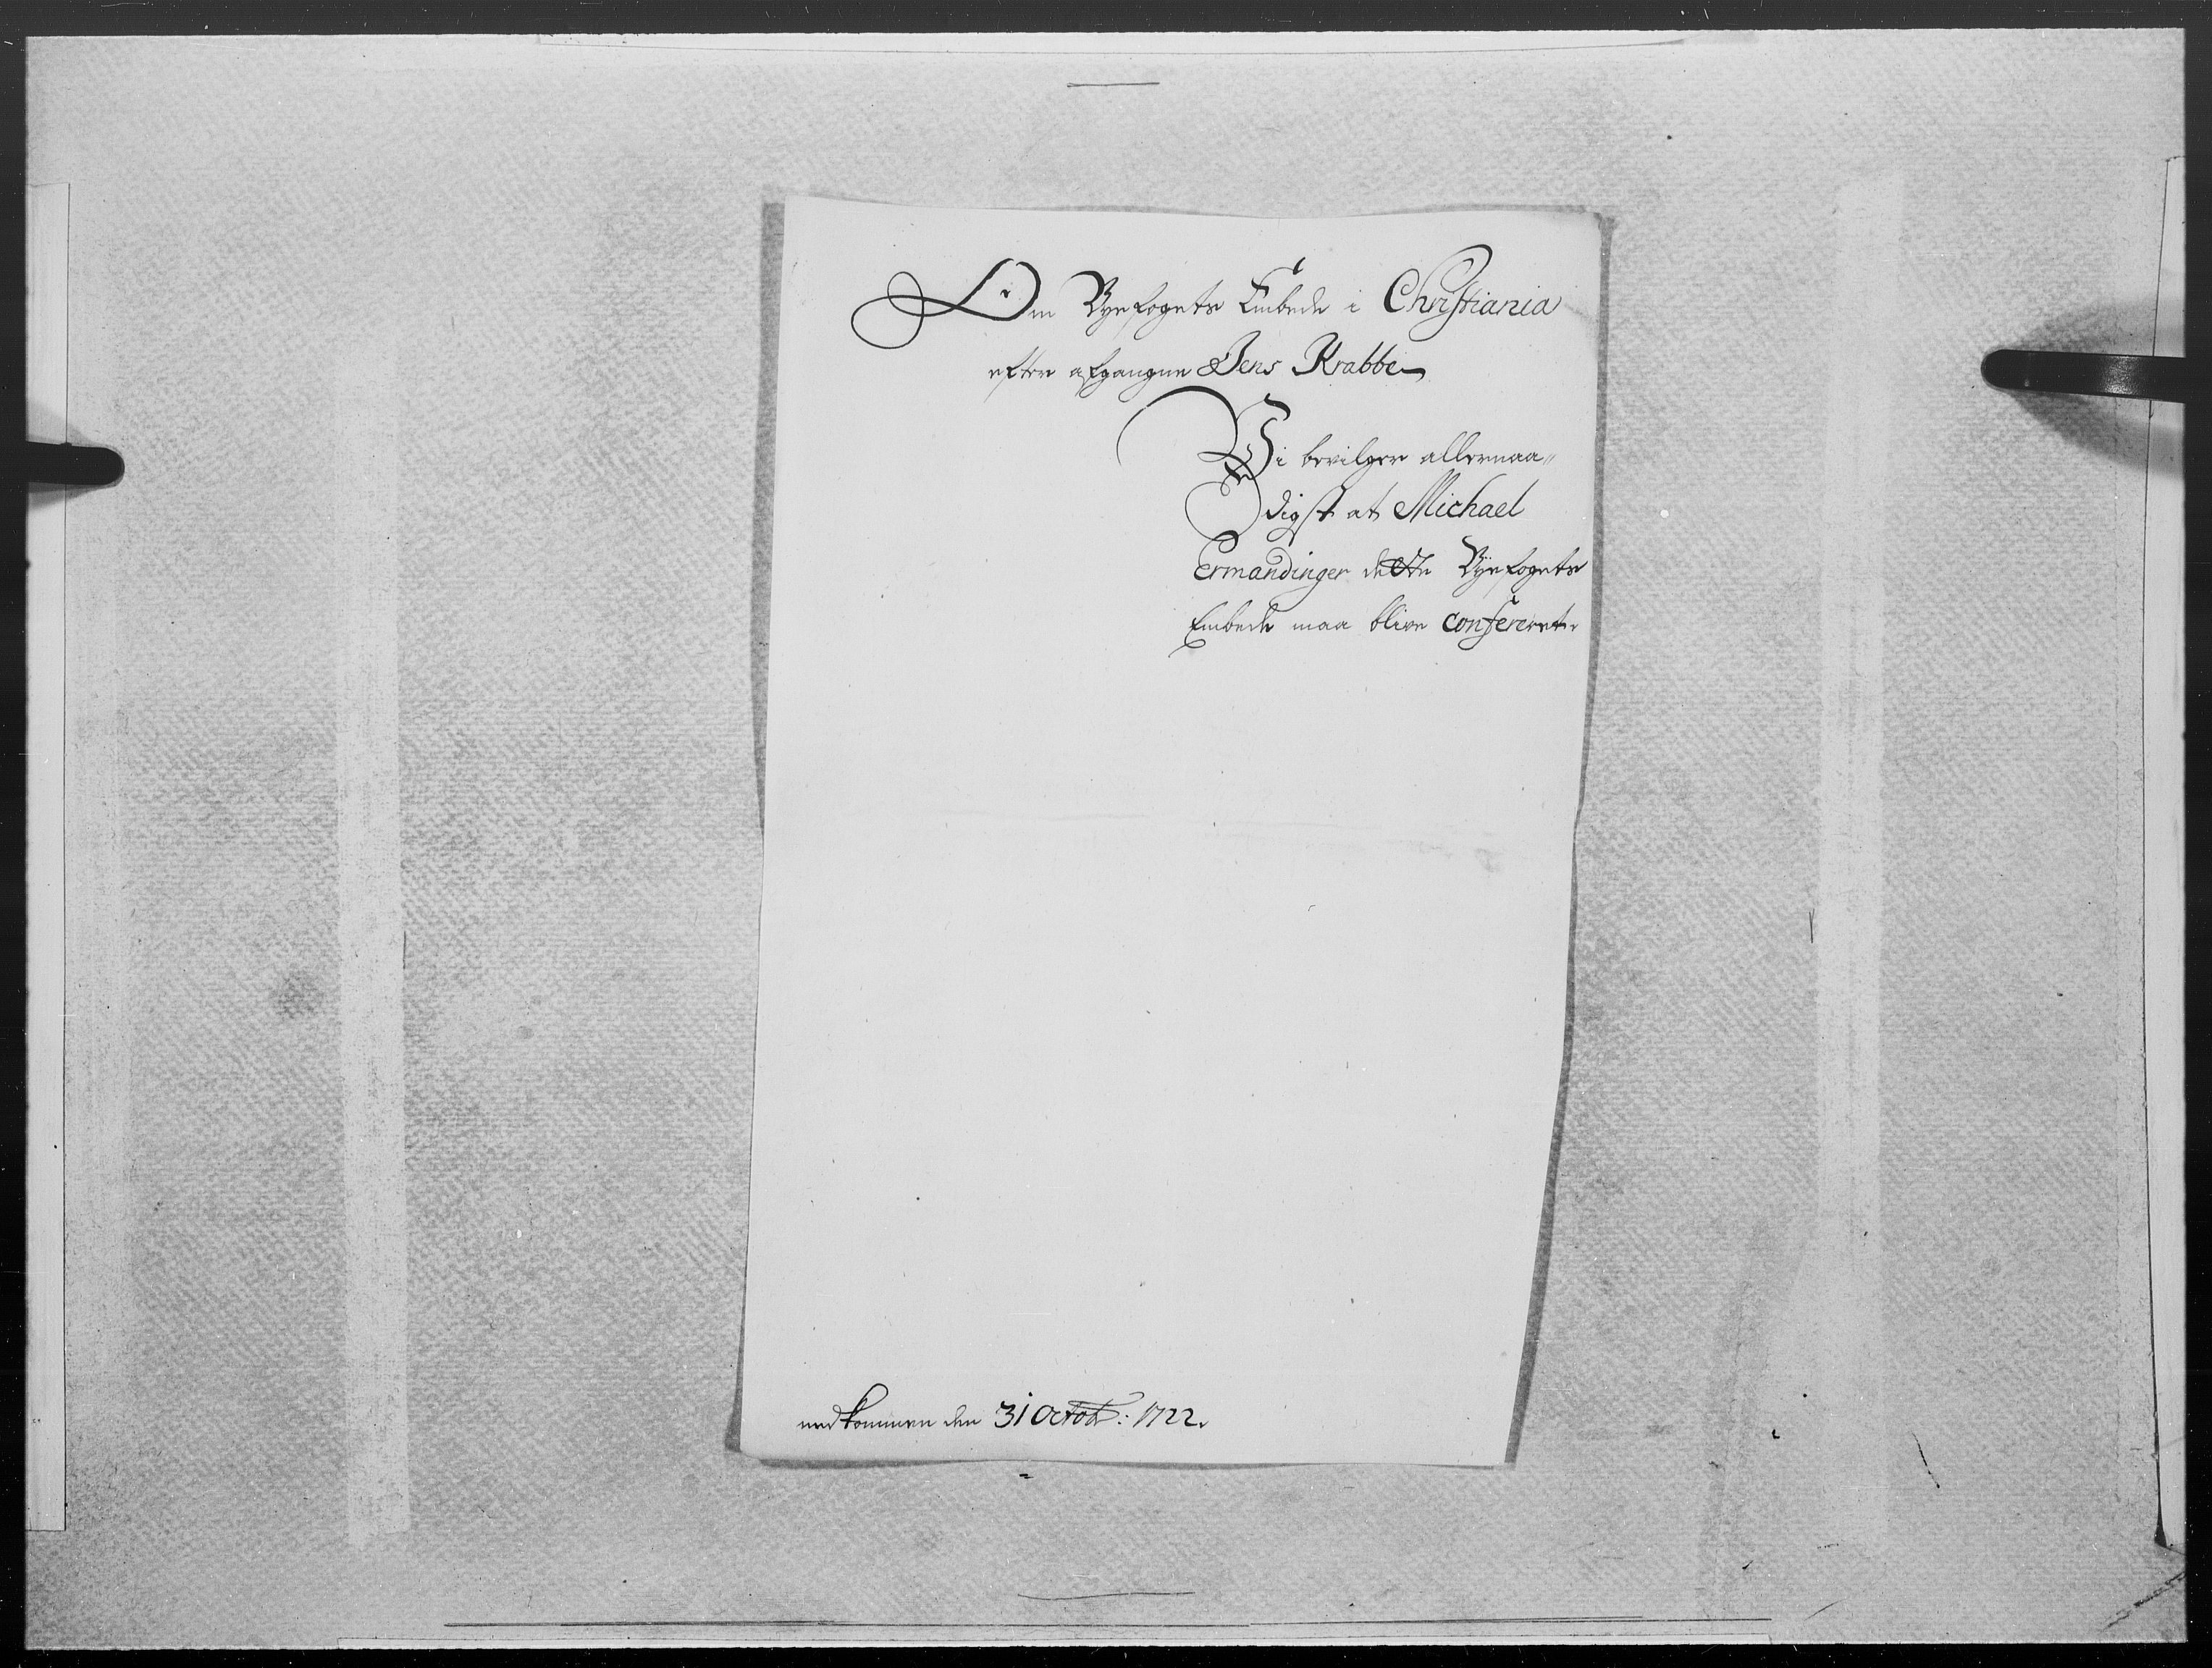 Om Byefogets Embede i Christiania
efter afgangne Jens Krabbe
Vi bevilger allernaa„
digst at Michael
Ermandinger dette Byefogets
Embede maa blive confereret.
nedkommen den 31 Octob: 1722.